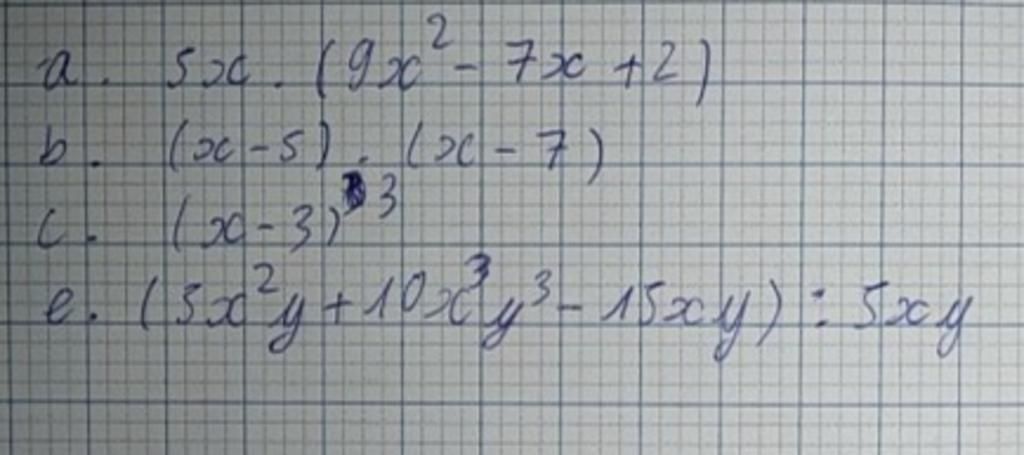 a. 5x . (9x² - 7x + 2)
b. (x - 5) . (x - 7)
c. (x - 3)³
e. (5x²y + 10x³y³ - 15xy) : 5xy